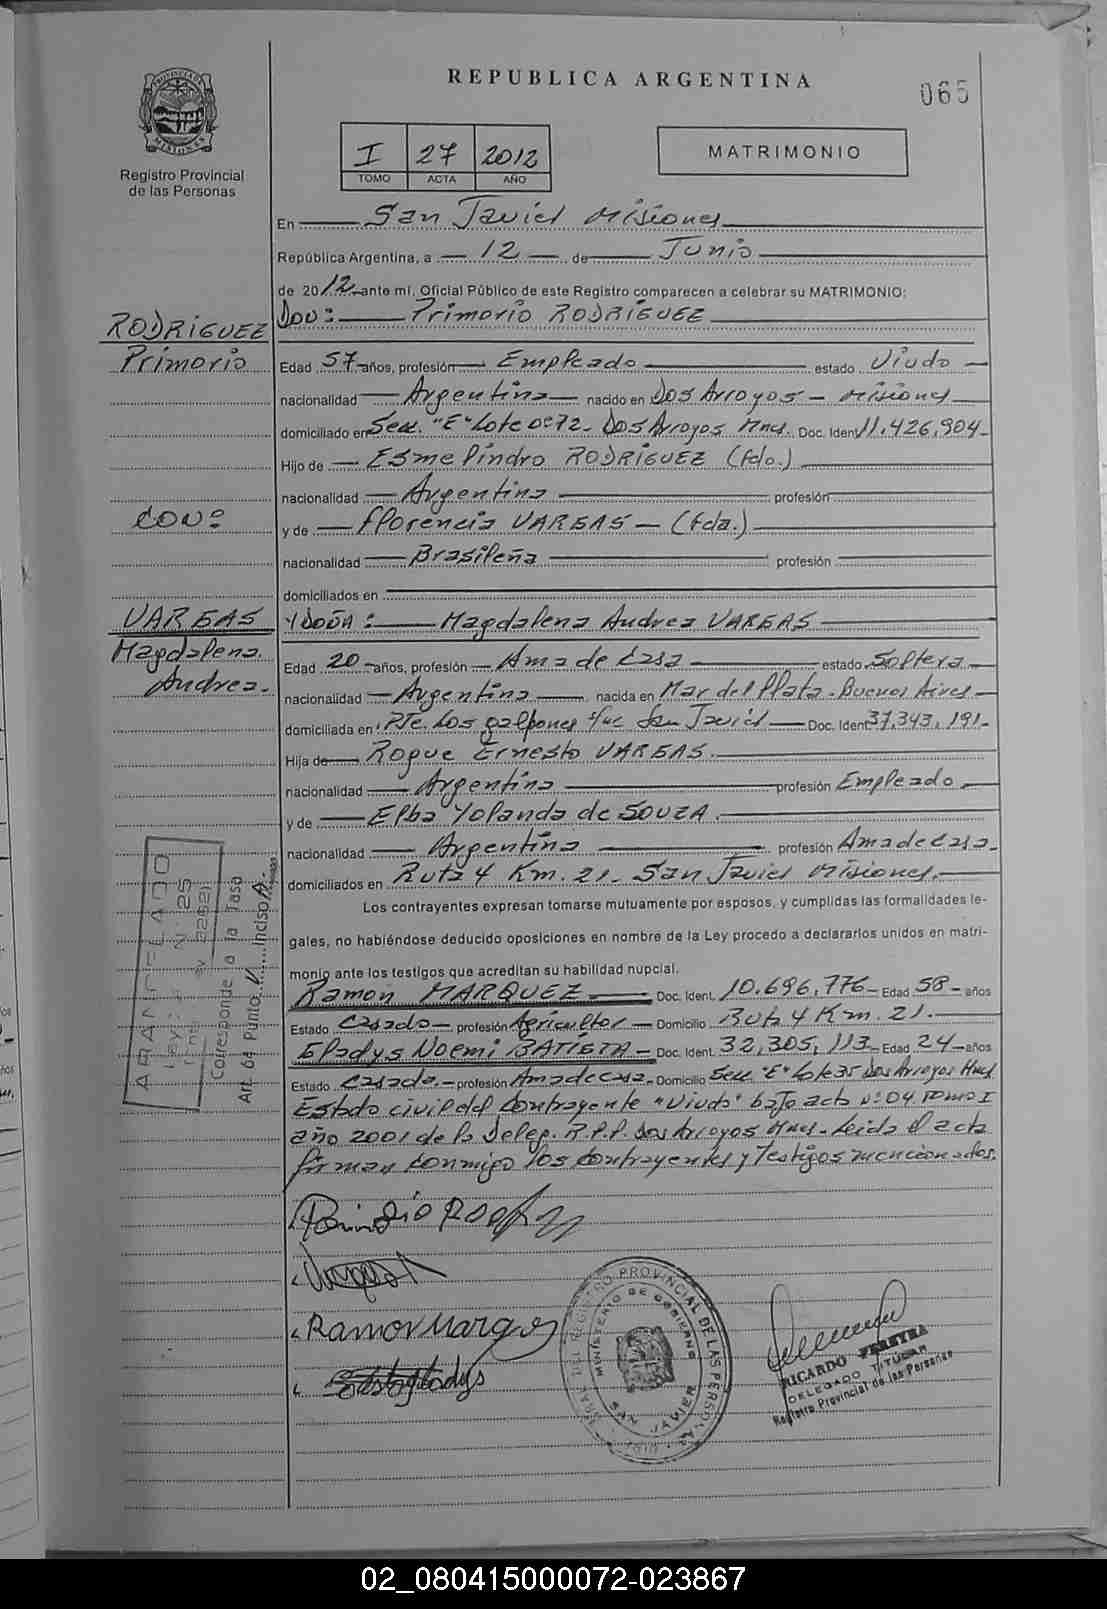 REPUBLICA ARGENTINA
065
PROVINCIA DE MISIONES
Registro Provincial
de las Personas
I 27 2012
TOMO ACTA AÑO
MATRIMONIO
En San Javier Misiones
República Argentina, a 12 de Junio
de 2012 ante mí, Oficial Público de este Registro comparecen a celebrar su MATRIMONIO:
DON: Primorio RODRIGUEZ
RODRIGUEZ
Primorio
Edad 57 años, profesión Empleado estado Viudo
nacionalidad Argentina nacido en Dos Arroyos - Misiones
domiciliado en Secc. "E" Lote nº 72 - Dos Arroyos Mnes. Doc. Ident 11.426.904-
Hijo de Esmelindro RODRIGUEZ (fdo.)
nacionalidad Argentina profesión
CON:
y de Florencia VARGAS - (fda.)
nacionalidad Brasileña profesión
domiciliados en
VARGAS
Magdalena
Andrea.
Y DOÑA: Magdalena Andrea VARGAS
Edad 20 años, profesión Ama de Casa estado Soltera
nacionalidad Argentina nacida en Mar del Plata - Buenos Aires
domiciliada en Pje. Los galpones San Javier Doc. Ident 37.343.191-
Hija de Roque Ernesto VARGAS.
nacionalidad Argentina profesión Empleado
y de Elba Yolanda de SOUZA.
nacionalidad Argentina profesión Ama de casa.
domiciliados en Ruta 4 Km. 21 - San Javier Misiones.
Los contrayentes expresan tomarse mutuamente por esposos, y cumplidas las formalidades le-
gales, no habiéndose deducido oposiciones en nombre de la Ley procedo a declararlos unidos en matri-
monio ante los testigos que acreditan su habilidad nupcial.
Ramon MARQUEZ Doc. Ident. 10.696.776- Edad 58- años
Estado Casado- profesión Agricultor- Domicilio Ruta 4 Km. 21.
Gladys Noemi BATISTA- Doc. Ident. 32.305.113- Edad 24- años
Estado Casada.- profesión Ama de casa- Domicilio Secc. "E" Lote 35 Dos Arroyos Mnes
Estado civil del Contrayente "Viudo" bajo acta nº: 04 Tomo I
año 2001 de la Deleg. R.P.P. Dos Arroyos Mnes - Leida el acta
firman conmigo los contrayentes y Testigos mencionados.
ARANCELADO
Corresponde a la Tasa
Art. 64 Punto V Inciso A
Ramon Marques
REGISTRO PROVINCIAL DE LAS PERSONAS
MINISTERIO DE GOBIERNO
SAN JAVIER
RICARDO PEREYRA
DELEGADO TITULAR
Registro Provincial de las Personas
02_080415000072-023867